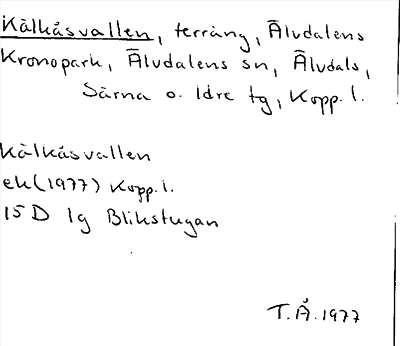 Kålkåsvallen, terräng, Älvdalens
Kronopark, Älvdalens sn, Älvdals,
Särna o. Idre tg, Kopp. l.
Kålkåsvallen
ek (1977) Kopp. l.
15 D 1g Blikstugan
T.Å. 1977